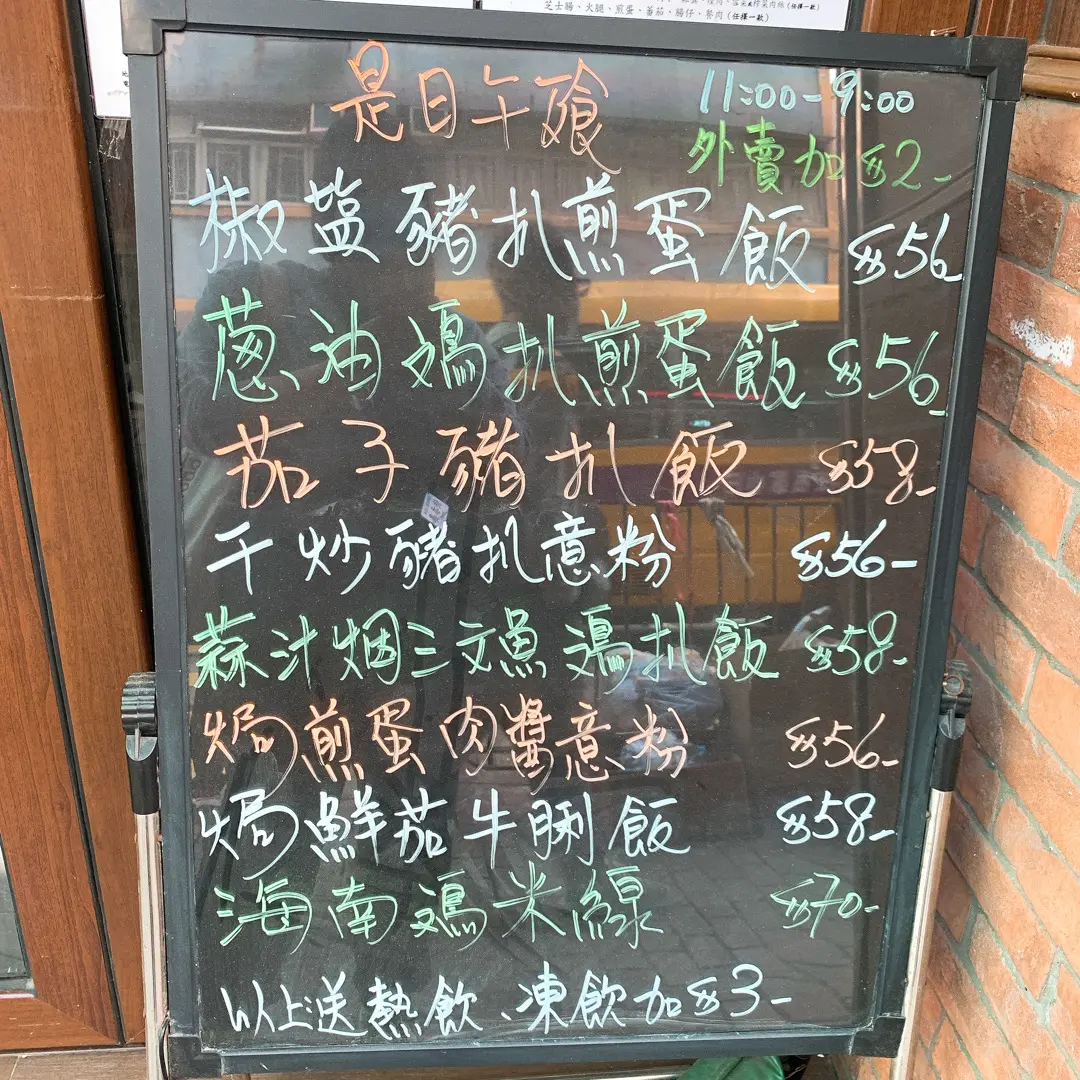 芝士腸、火腿、煎蛋、蕃茄、腸仔、餐肉(任擇一款)
是日午飱
11:00-9:00
外賣加$2-
椒盐豬扒煎蛋飯 $56-
蔥油鸡扒煎蛋飯 $56-
茄子豬扒飯 $58-
干炒豬扒意粉 $56-
蒜汁烟三文魚鸡扒飯 $58-
焗煎蛋肉醬意粉 $56-
焗鮮茄牛脷飯 $58-
海南鸡米線 $70-
以上送熱飲、凍飲加$3-